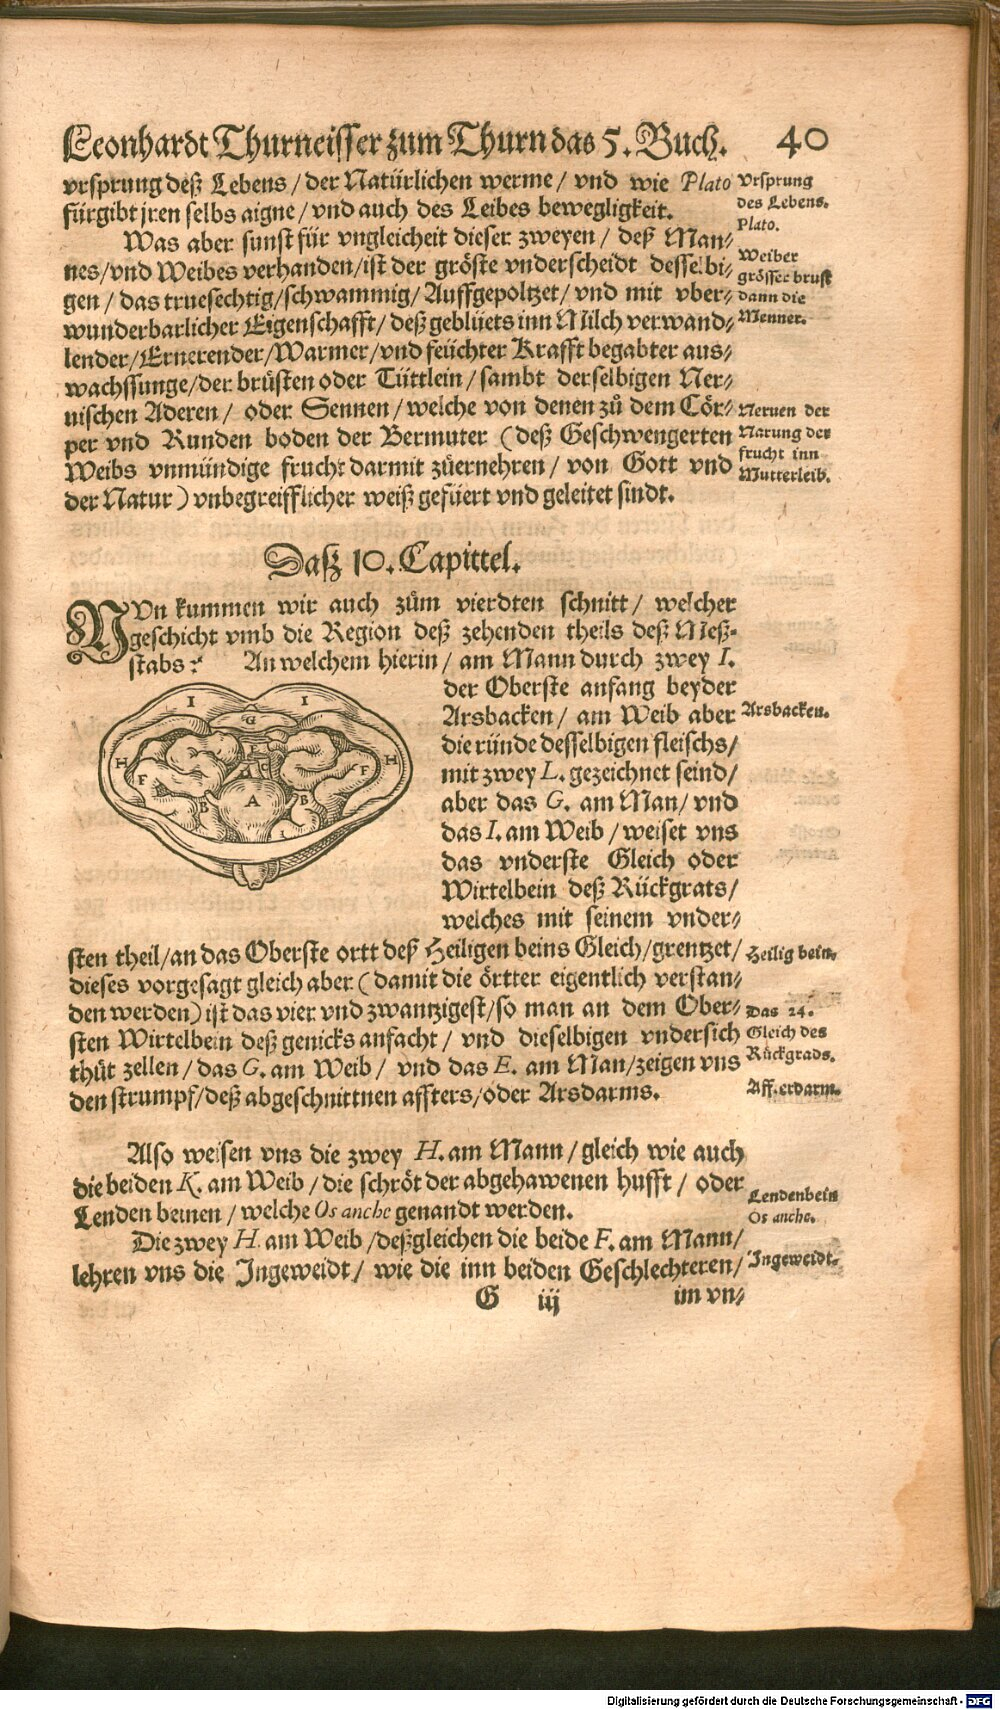 Leonhardt Thurneisser zum Thurn das 5. Buch. 40
vrsprung deß Lebens / der Natürlichen werme / vnd wie Plato
fürgibt jren selbs aigne / vnd auch des Leibes bewegligkeit.
Vrsprung
des Lebens.
Plato.
Was aber sunst für vngleicheit dieser zweyen / deß Man⸗
nes / vnd Weibes verhanden / ist der gröste vnderscheidt desselbi⸗
gen / das truesechtig / schwammig / Auffgepoltzet / vnd mit vber⸗
wunderbarlicher Eigenschafft / deß geblüets inn Milch verwand⸗
lender / Ernerender / Warmer / vnd feüchter Krafft begabter aus⸗
wachssunge / der brüsten oder Tüttlein / sambt derselbigen Ner⸗
uischen Aderen / oder Sennen / welche von denen zů dem Cör⸗
per vnd Runden boden der Bermuter (deß Geschwengerten
Weibs vnmündige frucht darmit züernehren / von Gott vnd
der Natur) vnbegreifflicher weiß gefüert vnd geleitet sindt.
Weiber
grösser brust
dann die
Menner.
Neruen der
Narung der
frucht inn
Mutterleib.
Daß 10. Capittel.
NVn kummen wir auch zům vierdten schnitt / welcher
geschicht vmb die Region deß zehenden theils deß Meß⸗
stabs: An welchem hierin / am Mann durch zwey I.
der Oberste anfang beyder
Arsbacken / am Weib aber
die ründe desselbigen fleischs /
mit zwey L. gezeichnet seind /
aber das G. am Man / vnd
das I. am Weib / weiset vns
das vnderste Gleich oder
Wirtelbein deß Rückgrats /
welches mit seinem vnder⸗
Arsbacken.
I I
G
H H
F E F
C
B A B
sten theil / an das Oberste ortt deß Heiligen beins Gleich / grentzet /
dieses vorgesagt gleich aber (damit die örtter eigentlich verstan⸗
den werden) ist das vier vnd zwantzigest / so man an dem Ober⸗
sten Wirtelbein deß genicks anfacht / vnd dieselbigen vndersich
thüt zellen / das G. am Weib / vnd das E. am Man / zeigen vns
den strumpf / deß abgeschnittnen affters / oder Arsdarms.
Heilig bein.
Das 24.
Gleich des
Rückgrads.
Affterdarm.
Also weisen vns die zwey H. am Mann / gleich wie auch
die beiden K. am Weib / die schröt der abgehawenen hufft / oder
Lenden beinen / welche Os anche genandt werden.
Lendenbein
Os anche.
Die zwey H. am Weib / deßgleichen die beide F. am Mann /
lehren vns die Ingeweidt / wie die inn beiden Geschlechteren /
Ingeweidt.
G iij im vn⸗
Digitalisierung gefördert durch die Deutsche Forschungsgemeinschaft - DFG